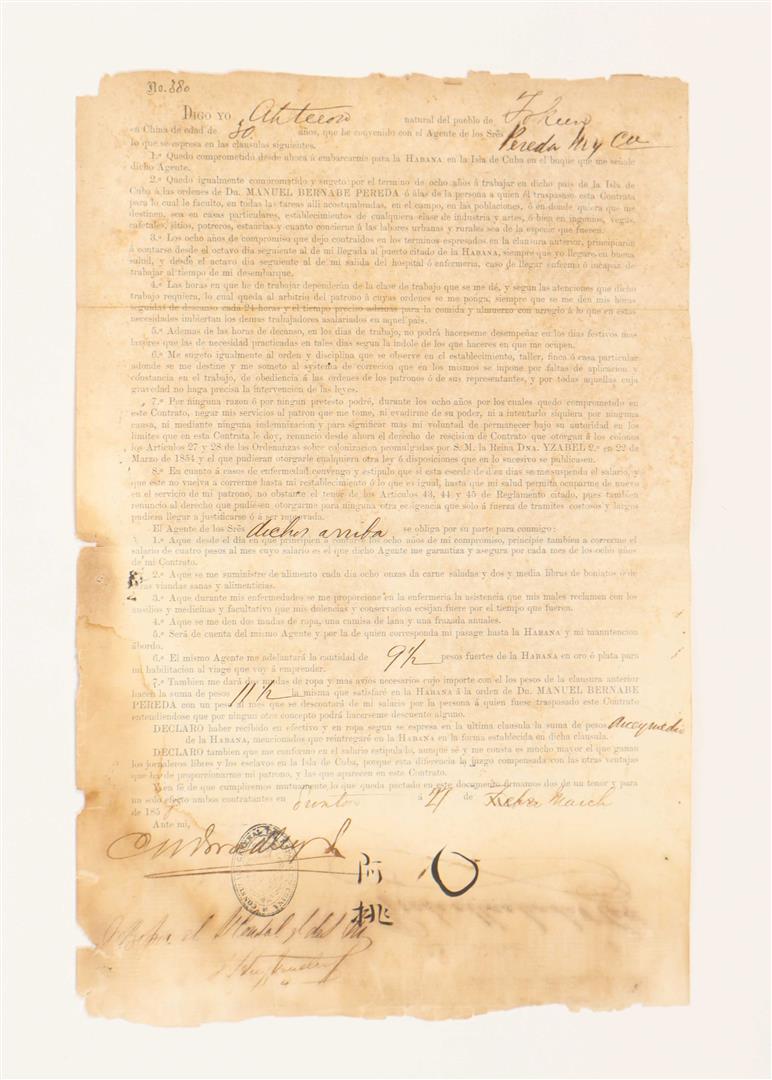 No. 380
DIGO YO natural del pueblo de
en China de edad de 30 años, que he convenido con el Agente de los Srēs Pereda
lo que se espresa en las clausulas siguientes.
1.ª Quedo comprometido desde ahora á embarcarme para la HABANA en la Isla de Cuba en el buque que me señale
dicho Agente.
2.ª Quedo igualmente comprometido y sugeto por el termino de ocho años á trabajar en dicho pais de la Isla de
Cuba á las ordenes de Dn. MANUEL BERNABE PEREDA ó á las de la persona á quien él traspasase esta Contrata
para lo cual le faculto, en todas las tareas alli acostumbradas, en el campo, en las poblaciones, ó en donde quiera que me
destinen, sea en casas particulares, establecimientos de cualquiera clase de industria y artes, ó bien en ingenios, vegas,
cafetales, sitios, potreros, estancias y cuanto concierne á las labores urbanas y rurales sea de la especie que fuesen.
3.ª Los ocho años de compromiso que dejo contraidos en los terminos espresados en la clausura anterior, principiarán
á contarse desde el octavo dia seguiente al de mi llegada al puerto citado de la HABANA, siempre que yo llegare en buena
salud, y desde el octavo dia seguiente al de mi salida del hospital ó enfermeria, caso de llegar enfermo ó incapaz de
trabajar al tiempo de mi desembarque.
4.ª Las horas en que he de trabajar dependerán de la clase de trabajo que se me dé, y segun las atenciones que dicho
trabajo requiera, lo cual queda al arbitrio del patrono á cuyas ordenes se me ponga, siempre que se me den mis horas
seguidas de descanso cada 24 horas y el tiempo preciso ademas para la comida y almuerzo con arreglo á lo que en estas
necesidades imbiertan los demas trabajadores asalariados en aquel pais.
5.ª Ademas de las horas de decanso, en los dias de trabajo, no podrá hacerseme desempeñar en los dias festivos mas
labores que las de necesidad practicadas en tales dias segun la indole de los que haceres en que me ocupen.
6.ª Me sugeto igualmente al orden y disciplina que se observe en el establecimiento, taller, finca ó casa particular
adonde se me destine y me someto al systema de correcion que en los mismos se inpone por faltas de aplicacion y
constancia en el trabajo, de obediencia á las ordenes de los patronos ó de sus representantes, y por todas aquellas cuja
gravedad no haga precisa la intervencion de las leyes.
7.ª Por ninguna razon ó por ningun pretesto podré, durante los ocho años por los cuales quedo comprometido en
este Contrato, negar mis servicios al patron que me tome, ni evadirme de su poder, ni a intentarlo siquiera por ninguna
causa, ni mediante ninguna indemnizacion y para significar mas mi voluntad de permanecer bajo su autoridad en los
limites que en esta Contrata le doy, renuncio desde ahora el derecho de rescision de Contrato que otorgán á los colonos
los Articulos 27 y 28 de las Ordenanzas sobre colonizacion promulgadas por S.M. la Reina DNA. YZABEL 2.ª en 22 de
Marzo de 1854 y el que pudieran otorgarle cualquiera otra ley ó disposiciones que en lo sucesivo se publicasen.
8.ª En cuanto á casos de enfermedad convengo y estipulo que si esta escede de diez dias se me suspenda el salario, y
que este no vuelva a correrme hasta mi restablecimiento ó lo que es igual, hasta que mi salud permita ocuparme de nuevo
en el servicio de mi patrono, no obstante el tenor de los Articulos 43, 44 y 45 de Reglamento citado, pues tambien
renuncio al derecho que pudiesen otorgarme para ninguna otra ecsigencia que solo á fuerza de tramites costosos y largos
pudiera llegar a justificarse ó á ser removada.
El Agente de los Srēs dichos arriba se obliga por su parte para conmigo:
1.ª Aque desde el dia en que principien á contarse los ocho años de mi compromiso, principie tambien a correrme el
salario de cuatro pesos al mes cuyo salario es el que dicho Agente me garantiza y asegura por cada mes de los ocho años
de mi Contrato.
2.ª Aque se me suministre de alimento cada dia ocho onzas da carne saladas y dos y media libras de boniatos ó de
otras viandas sanas y alimenticias.
3.ª Aque durante mis enfermedades se me proporcione en la enfermeria la asistencia que mis males reclamen con los
ausilios y medicinas y facultativo que mis dolencias y conservacion ecsijan fuere por el tiempo que fueren.
4.ª Aque se me den dos mudas de ropa, una camisa de lana y una fruzada anuales.
5.ª Será de cuenta del mismo Agente y por la de quien corresponda mi pasage hasta la HABANA y mi manutencion
ábordo.
6.ª El mismo Agente me adelantará la cantidad de 9½ pesos fuertes de la HABANA en oro ó plata para
mi habilitacion al viage que voy á emprender.
7.ª Tambien me dará dos mudas de ropa y mas avios necesarios cujo importe con el los pesos de la clausura anterior
hacen la suma de pesos 11½ la misma que satisfaré en la HABANA á la orden de Dn. MANUEL BERNABE
PEREDA con un peso al mes que se descontará de mi salario por la persona á quien fuese traspasado este Contrato
entendiendose que por ningun otro concepto podrá hacerseme descuento alguno.
DECLARO haber recibido en efectivo y en ropa segun se espresa en la ultima clausula la suma de pesos once y medio
de la HABANA, mencionados que reintregaré en la HABANA en la forma establecida en dicha clausula.
DECLARO tambien que me conformo en el salario estipulado, aunque sé y me consta es mucho mayor el que ganan
los jornaleros libres y los esclavos en la Isla de Cuba, porque esta diferencia la juzgo compensada con las otras ventajas
que ha de proporcionarme mi patrono, y las que aparecen en este Contrato.
Y en fé de que cumpliremos mutuamente lo que queda pactado en este documento firmamos dos de un tenor y para
un solo efecto ambos contratantes en Swatow á 27 de March
de 185
Ante mi,
阿
挑